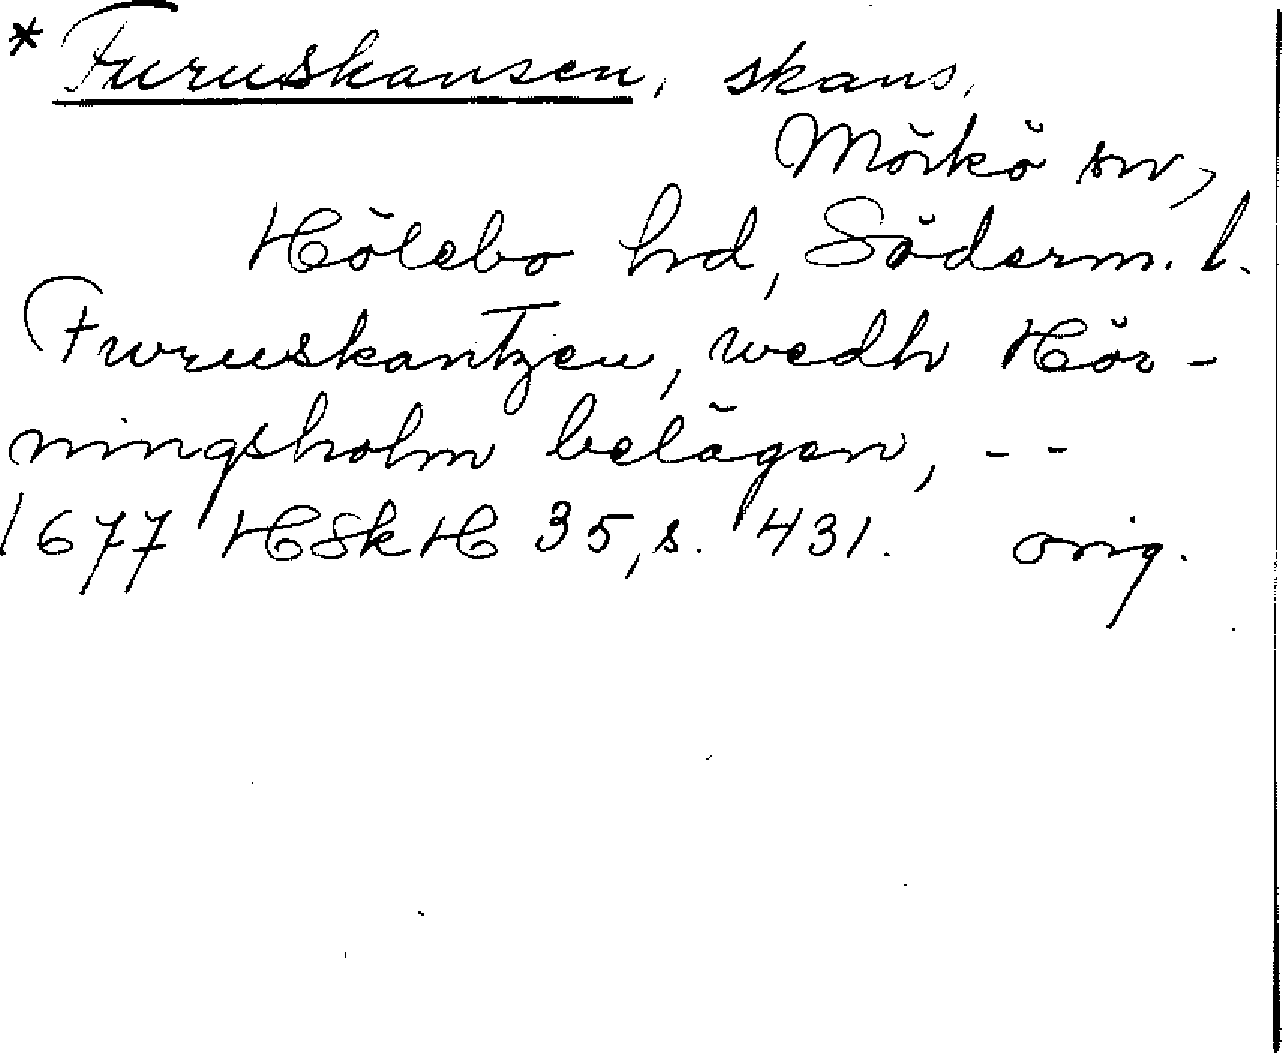 * Furuskansen, skans,
Mörkö sn,
Hölebo hd, Söderm. l.
Furuuskantzen, wedh Hör-
ningsholm belägen, - -
1677 HSkH 35, s. 431. orig.